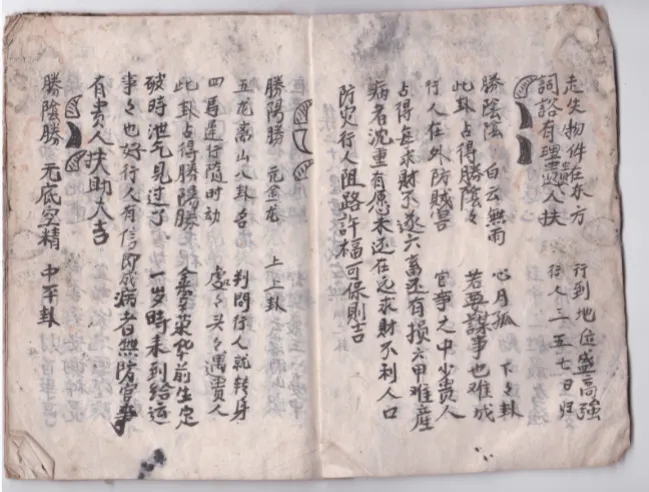 走失物件在东方 行到地位盛高強
詞訟有理貴人扶 行人三五七日归
勝陰陰 白云無雨 心月孤 下々卦
此卦占得勝陰々 若要謀事也难成
行人在外防賊害 官事之中少貴人
占得每求財不遂六畜还有損六甲难産
病者沈重有愿未还在完求財不利人口
防灾行人阻路許福可保則吉
勝陽勝 元金龙 上上卦
五龙离山八卦名 判問行人就转身
四馬運行隨时动 處々头々遇贵人
此卦占得勝陽勝 金 荣华前生定
破時泄气見过了 一岁時来到给运
事々也好行人有信即 病者無防官事
有貴人扶助大吉
勝陰勝 元底空精 中平卦